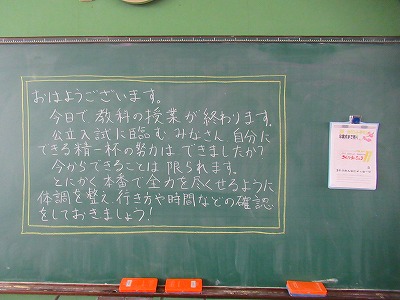 おはようございます。
今日で 教科の授業が終わります。
公立入試に臨む みなさん 自分に
できる精一杯の努力は できましたか?
今からできることは 限られます。
とにかく本番で全力を尽くせるように
体調を整え 行き方や時間などの確認
をしておきましょう!